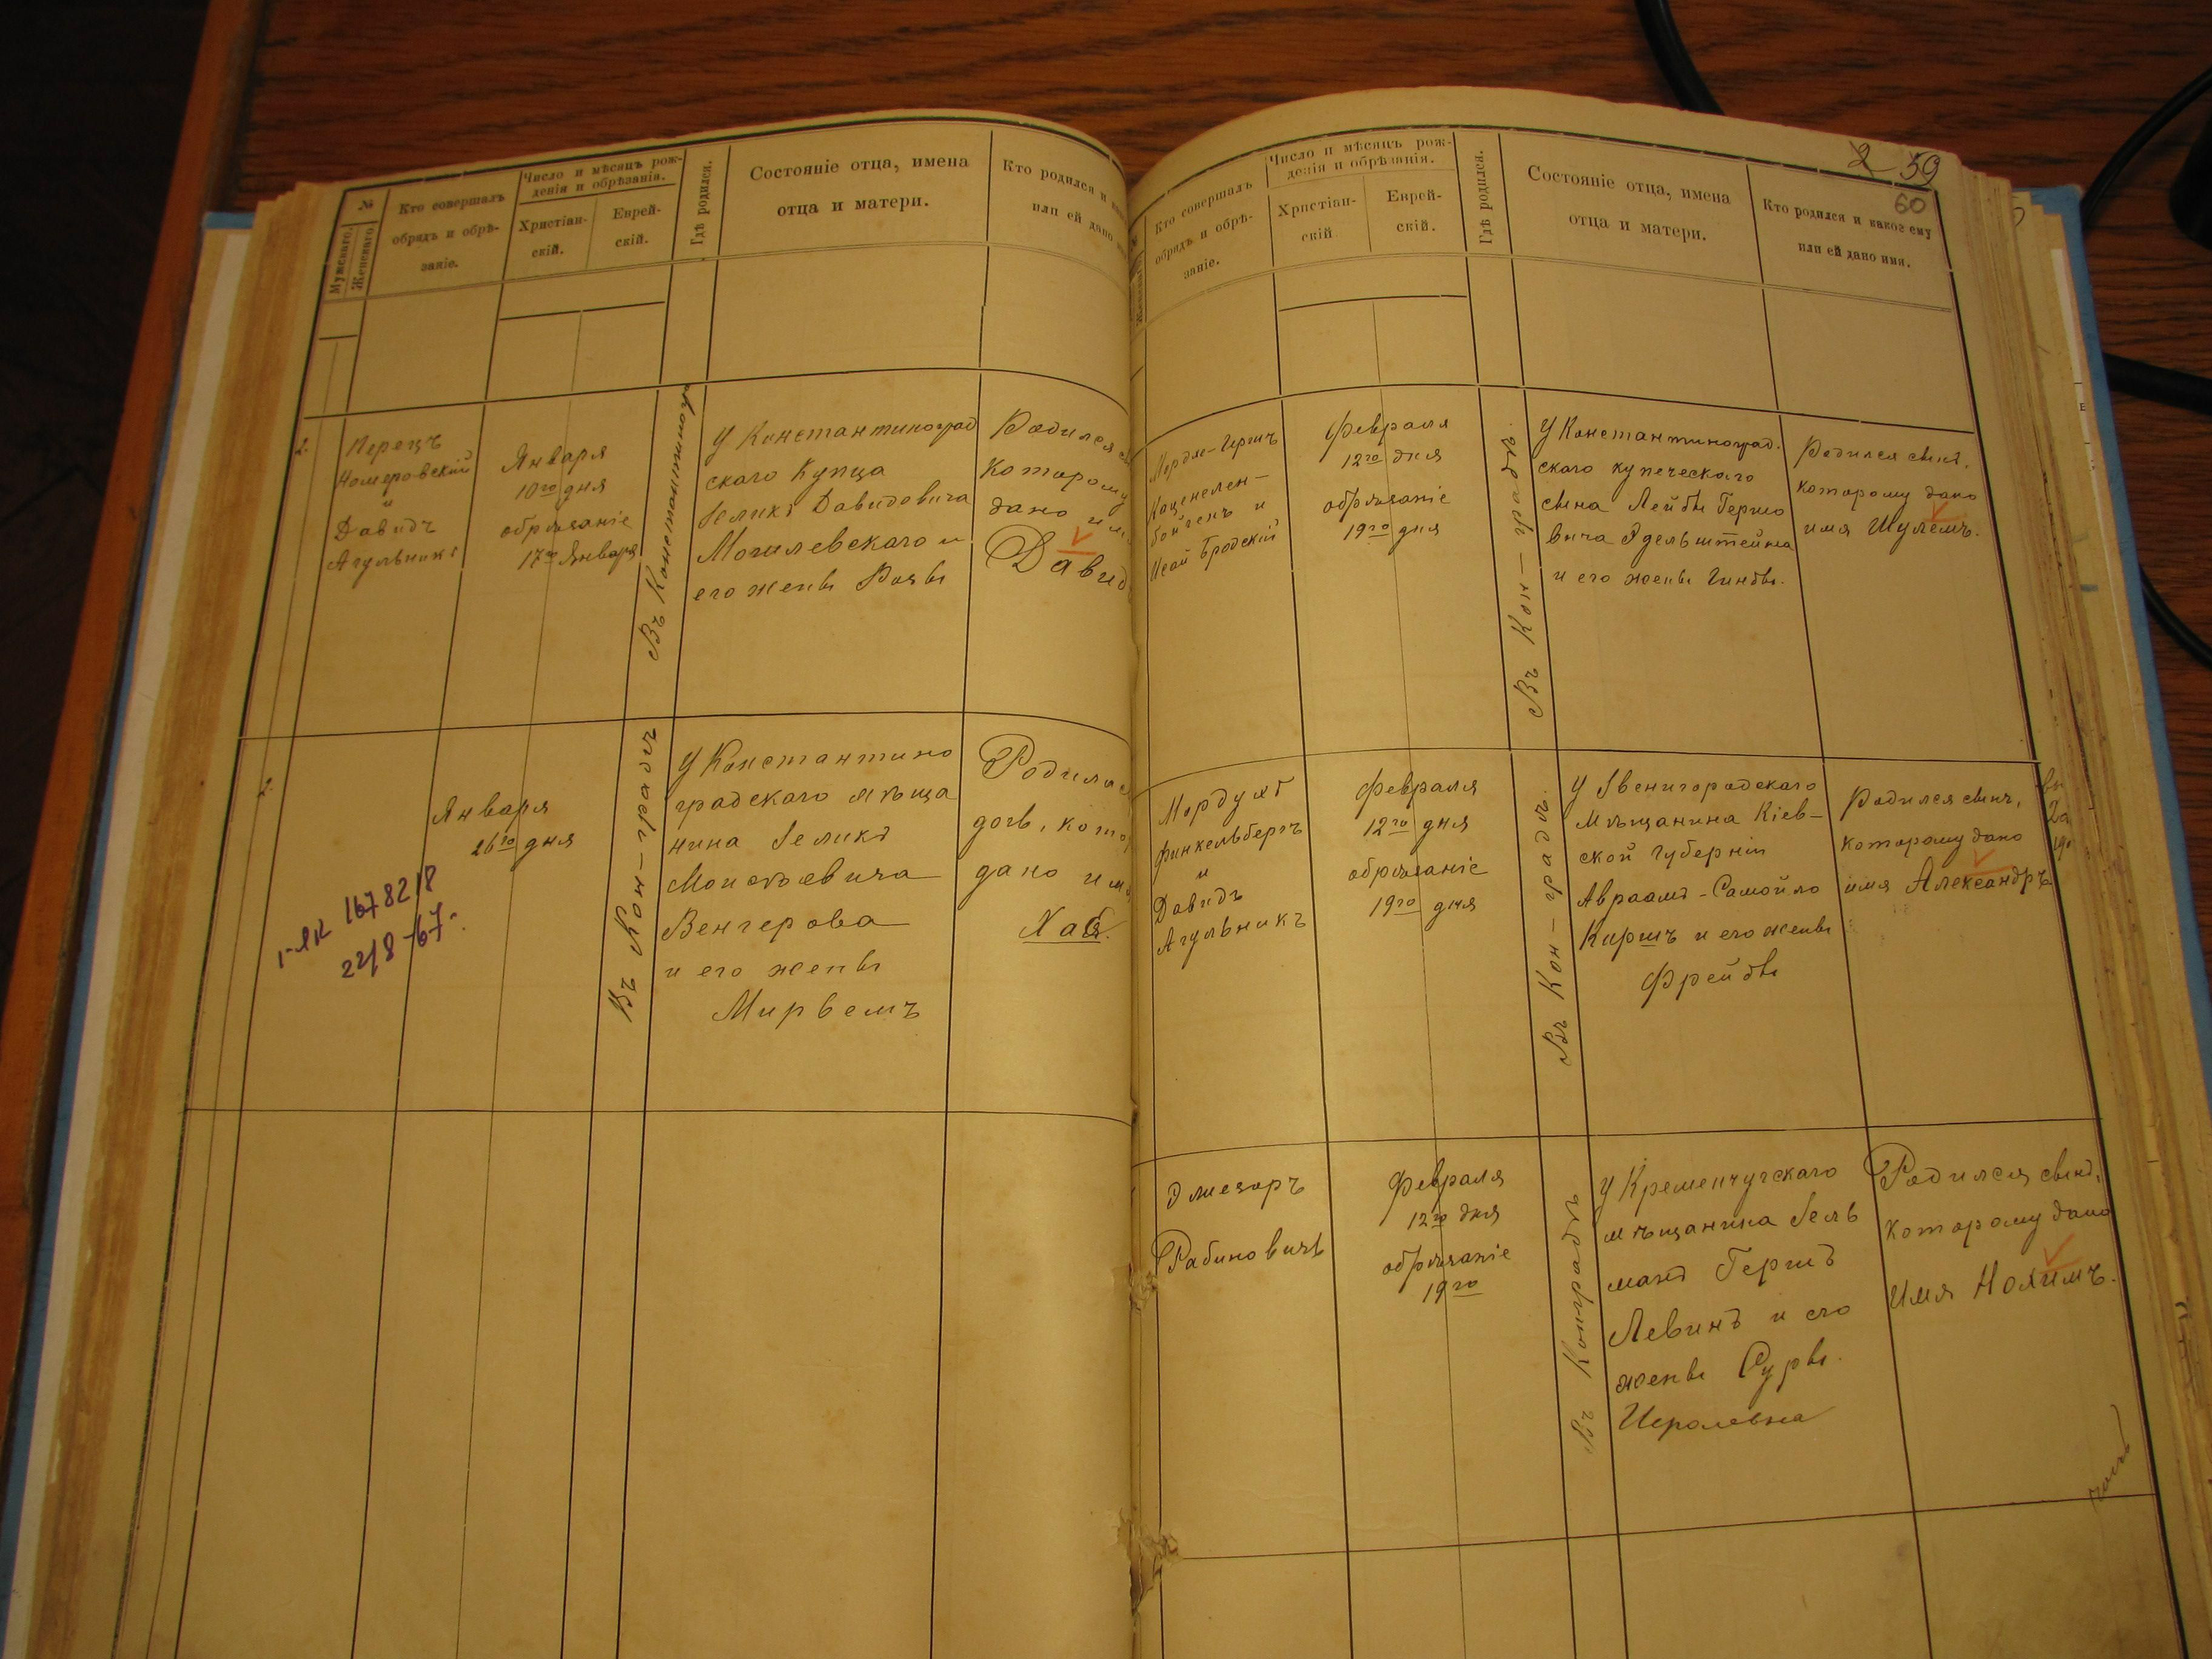 №
Мужескаго.
Женскаго.
Кто совершалъ
обрядъ и обрѣ-
заніе.
Число и мѣсяцъ рож-
денія и обрѣзанія.
Христіан-
скій.
Еврей-
скій.
Гдѣ родился.
Состояніе отца, имена
отца и матери.
Кто родился и
или ей дано
2.
Перецъ
Номеровскій
и
Давидъ
Агульникъ
Января
10го дня
обрѣзаніе
17го Января
Въ Константиноградѣ
У Константиноград
скаго Купца
Зелика Давидовича
Могилевскаго и
его жены Розы
Родился
Которому
дано
Давид
2.
Января
26го дня
Въ Кон-градѣ
У Константино
градскаго мѣща
нина Зелика
Моисѣевича
Венгерова
и его жены
Мирвемъ
Родилас
дочь, кото
дано имя
Хая.
167 82/8
22/8-67г.
2 59
60
Кто совершалъ
обрядъ и обрѣ-
заніе.
Число и мѣсяцъ рож-
денія и обрѣзанія.
Христіан-
скій
Еврей-
скій.
Гдѣ родился.
Состояніе отца, имена
отца и матери.
Кто родился и какое ему
или ей дано имя.
Каценелен-
бойгенъ и
Исай Бродскій
Февраля
12го дня
обрѣзаніе
19го дня
Въ Кон-градѣ.
У Константиноград.
скаго купеческаго
сына Лейбы Гершо
вича Эдельштейна
и его жены Гинды.
Родился сынъ,
которому дано
имя Шулемъ.
Мордухъ
Финкельбергъ
и
Давидъ
Агульникъ
Февраля
12го дня
обрѣзаніе
19го дня
Въ Кон-градѣ.
У Звенигородскаго
Мѣщанина Кіев-
ской губерніи
Авраамъ-Самойло
Киршъ и его жены
Фрейды
Родился сынъ,
которому дано
имя Александръ
Элиезаръ
Рабиновичъ
Февраля
12го дня
обрѣзаніе
19го
Въ Конградѣ
У Кременчугскаго
мѣщанина Зель
манъ Гершъ
Левинъ и его
жены Суры.
Исролевна
Родился сынъ,
которому дано
Имя Ноахимъ.